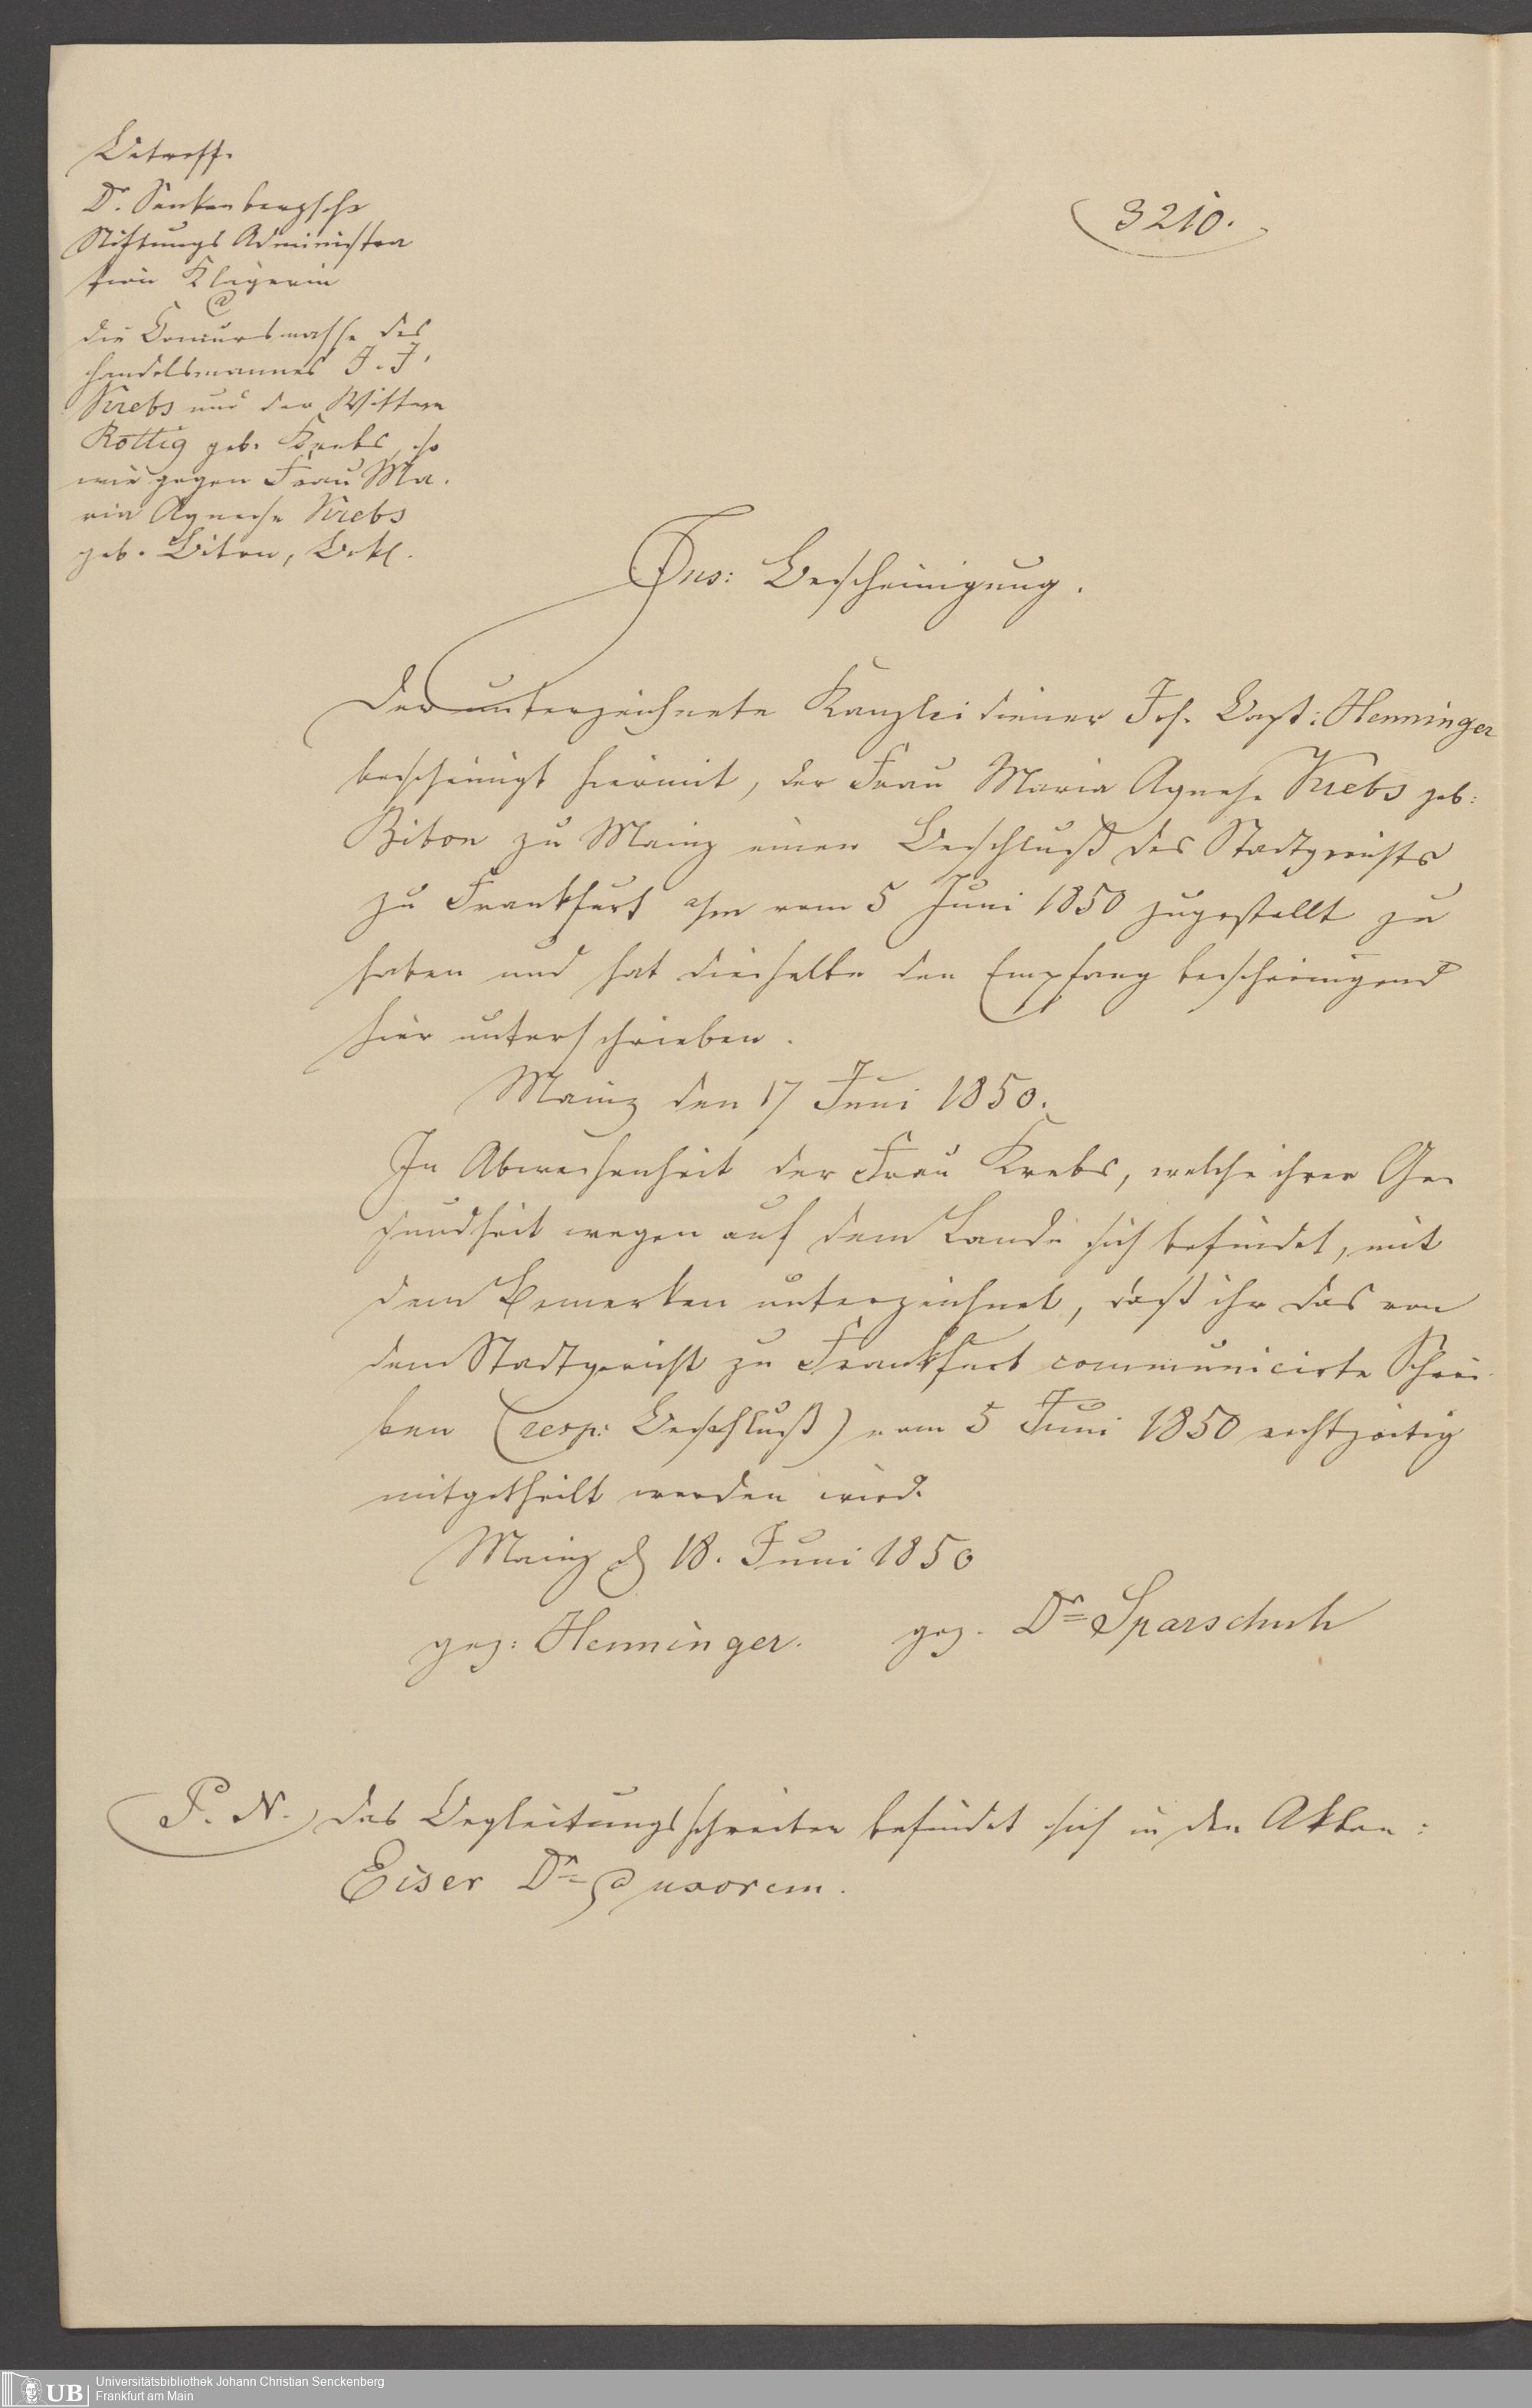 Betreff.
Dr. Senkenbergsche
Stiftungs Administra
tion Klägerin
@
die Concursmasse des
Handelsmannes J. J.
Krebs und der Wittwe
Rottig geb. Krebs, so
wie gegen Frau Ma-
ria Agnese Krebs
geb. Biton, Bekl.
3210.
Ins: Bescheinigung.
Der unterzeichnete Kanzleidiener Joh. Bapt: Henninger
bescheinigt hiermit, der Frau Maria Agnese Krebs geb:
Biton zu Mainz einen Beschluß des Stadtgerichts
zu Frankfurt a/m vom 5 Juni 1850 zugestellt zu
haben und hat dieselbe den Empfang bescheinigend
hier unterschrieben.
Mainz den 17 Juni 1850.
In Abwesenheit der Frau Krebs, welche ihrer Ge-
sundheit wegen auf dem Lande sich befindet, mit
dem Bemerken unterzeichnet, daß ihr das von
dem Stadtgericht zu Frankfurt communicirte Schrei-
ben (resp: Beschluß) vom 5 Juni 1850 rechtzeitig
mitgetheilt werden wird.
Mainz d 18. Juni 1850
gez: Henninger. gez. Dr Sparschuh
P. N. Das Begleitungsschreiben befindet sich in den Akten:
Eiser Dr @ uxorem.
UB Universitätsbibliothek Johann Christian Senckenberg
Frankfurt am Main